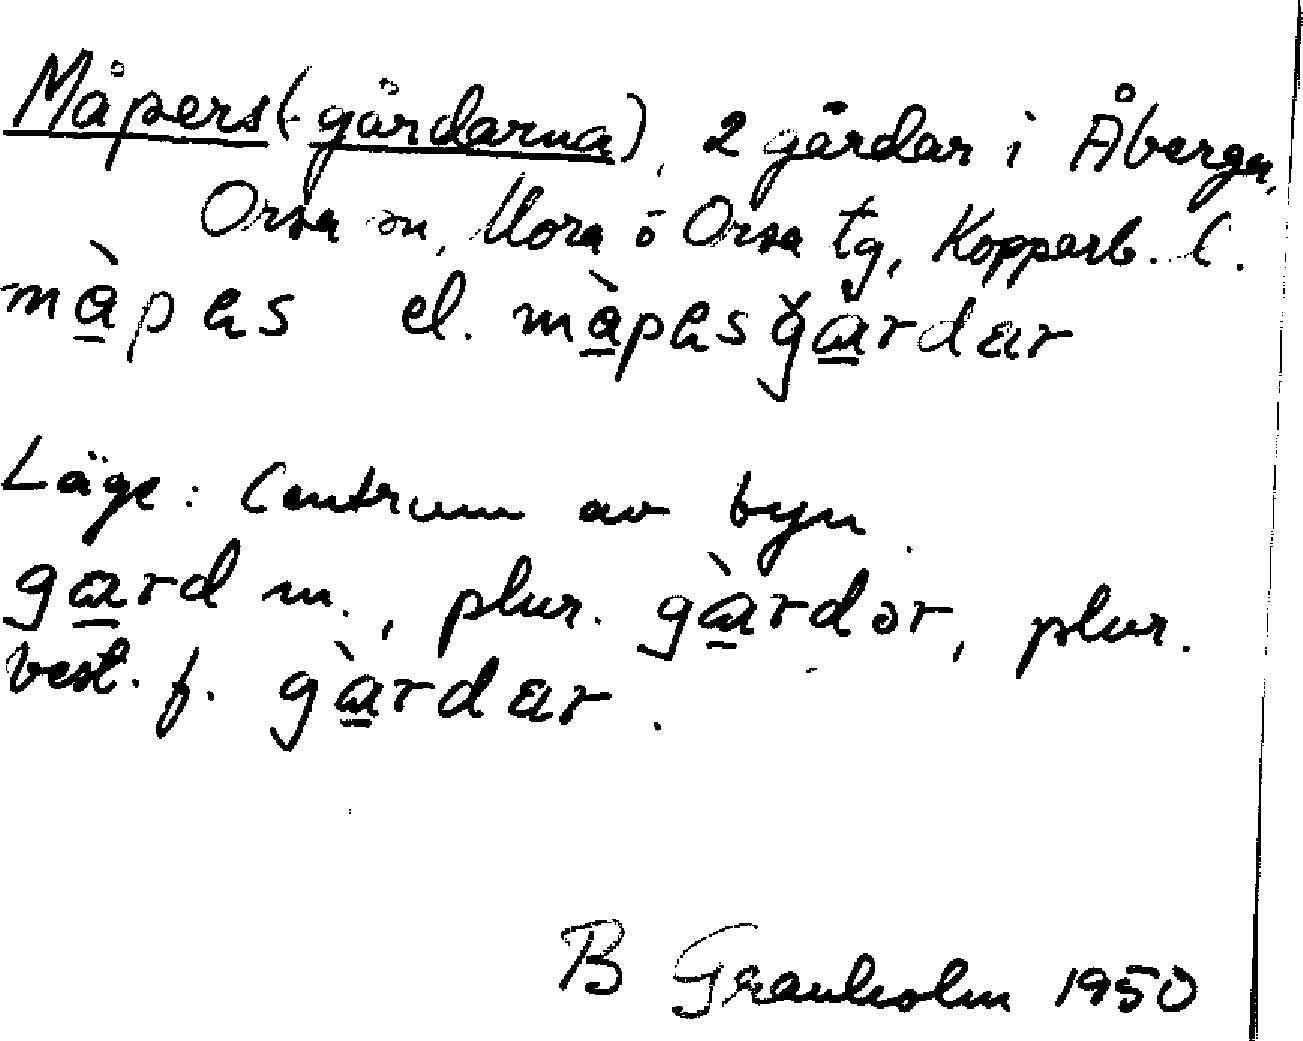 Måpers(-gårdarna), 2 gårdar i Åberga,
Orsa sn, Mora o Orsa tg, Kopparb. l.
màpas el. màpasgàrdar
Läge: Centrum av byn.
gard m., plur. gàrdər, plur.
best. f. gàrdar.
B Granholm 1950